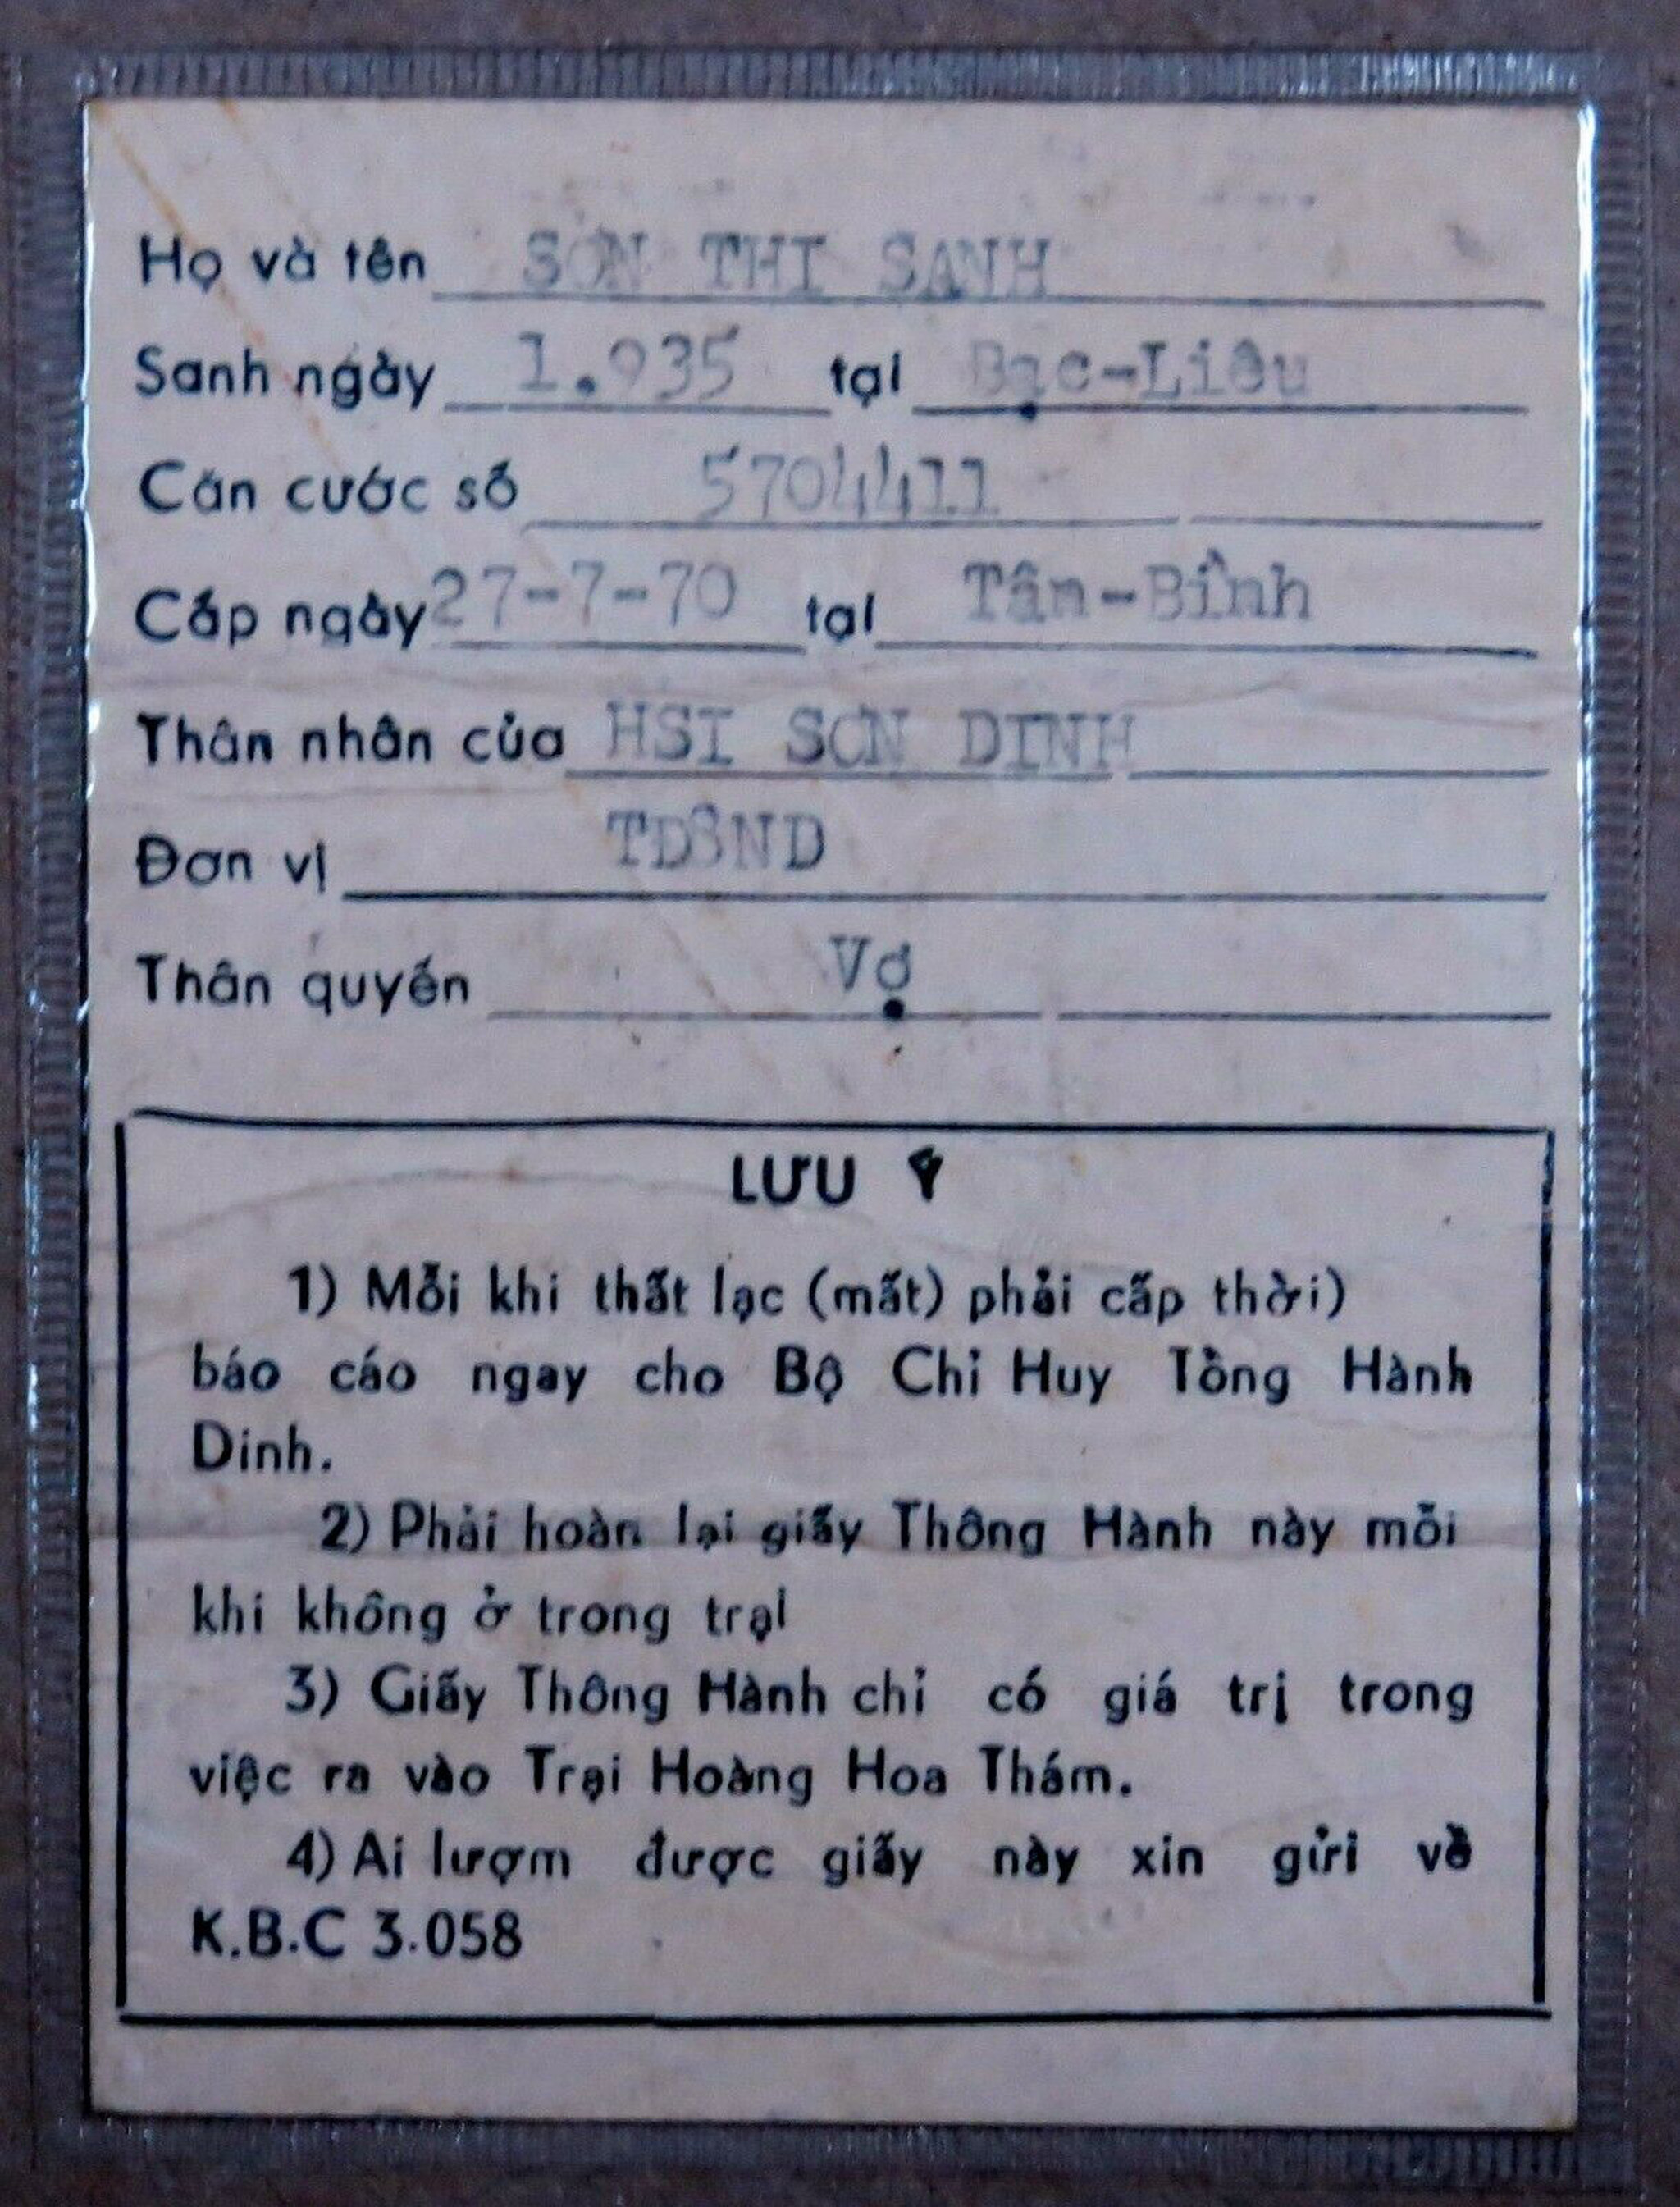 Họ và tên SƠN THI SANH
Sanh ngày 1.935 tại Bạc-Liêu
Căn cước số 5704411
Cấp ngày 27-7-70 tại Tân-Bình
Thân nhân của HSI SƠN DINH
Đơn vị TD8ND
Thân quyến Vợ
LƯU Ý
1) Mỗi khi thất lạc (mất) phải cấp thời)
báo cáo ngay cho Bộ Chỉ Huy Tổng Hành
Dinh.
2) Phải hoàn lại giấy Thông Hành này mỗi
khi không ở trong trại
3) Giấy Thông Hành chỉ có giá trị trong
việc ra vào Trại Hoàng Hoa Thám.
4) Ai lượm được giấy này xin gửi về
K.B.C 3.058